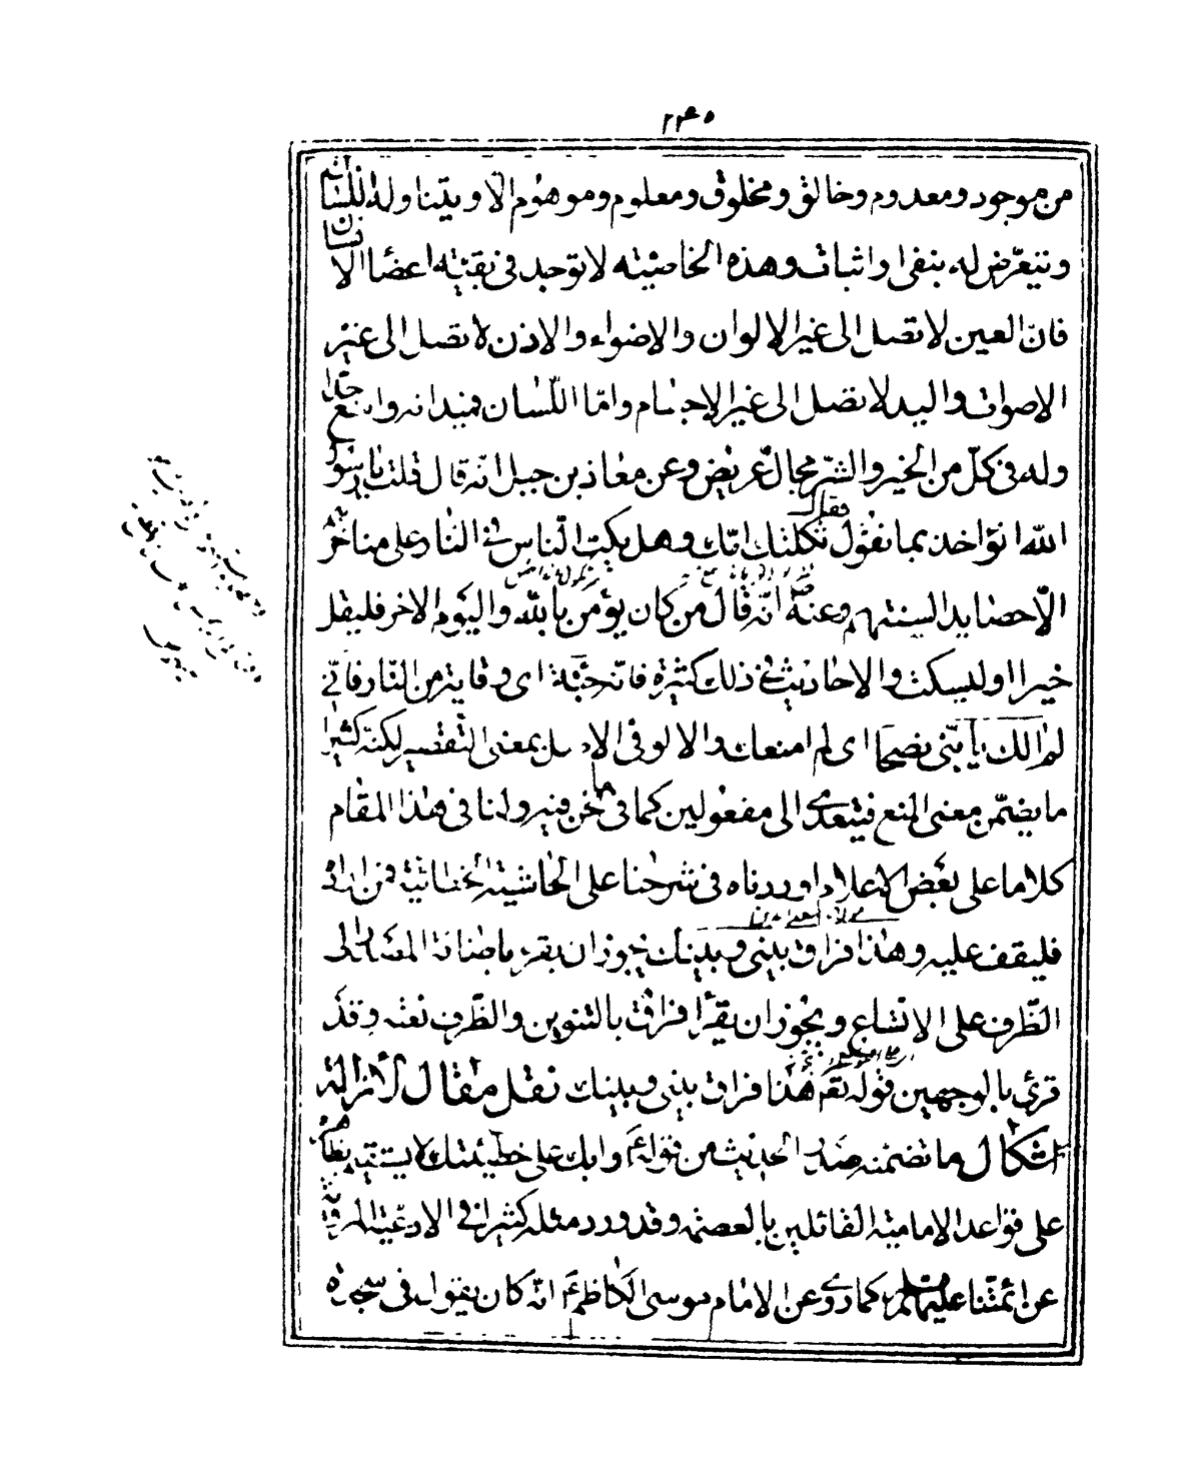 ٢٣٥
من موجود ومعدوم وخالق ومخلوق ومعلوم وموهوم الا ويتناوله اللسان
ويتعرّض له بنفى واثبات وهذه الخاصيّة لا توجد فى بقيّة اعضاء الانسان
فانّ العين لا تصل الى غير الالوان والاضواء والاذن لا تصل الى غير
الاصوات واليد لا تصل الى غير الاجسام وامّا اللّسان فميدانه واسع جدّا
وله فى كلّ من الخير والشّر مجال عريض وعن معاذ بن جبل انّه قال قلت يا رسول
الله انؤاخذ بما نقول فقال ثكلتك امّك وهل يكبّ النّاس فى النار على مناخرهم
الّا حصايد السنتهم وعنه ص انّه قال من كان يؤمن بالله واليوم الاخر فليقل
خيرا او ليسكت والاحاديث فى ذلك كثيرة فانّه جنّة اى وقاية من النّار فانّى
لم الك يا بنّى نصحا اى لم امنعك والالو فى الاصل بمعنى التقصير لكنّه كثيرا
ما يضمّن معنى المنع فيتعدى الى مفعولين كما فى ما نحن فيه ولنا فى هذا المقام
كلاما على بعض الاعلام اوردناه فى شرحنا على الحاشية الخطائية فمن اراده
فليقف عليه وهذا فراق بينى وبينك يجوز ان يقرء باضافة المصدر الى
الظّرف على الاتساع ويجوز ان يقرأ فراق بالتنوين والظّرف نعته وقد
قرئ بالوجهين قوله تعم هذا فراق بينى وبينك نقل مقال لازالة
اشكال ما تضمنه صدر الحديث من قوله ع وابك على خطيئتك لا يستقيم بظاهره
على قواعد الامامية القائلين بالعصمة وقد ورد مثله كثيرا فى الادعية المروية
عن ائمّتنا عليهم السلم كما روى عن الامام موسى الكاظم ع انّه كان يقول فى سجوده